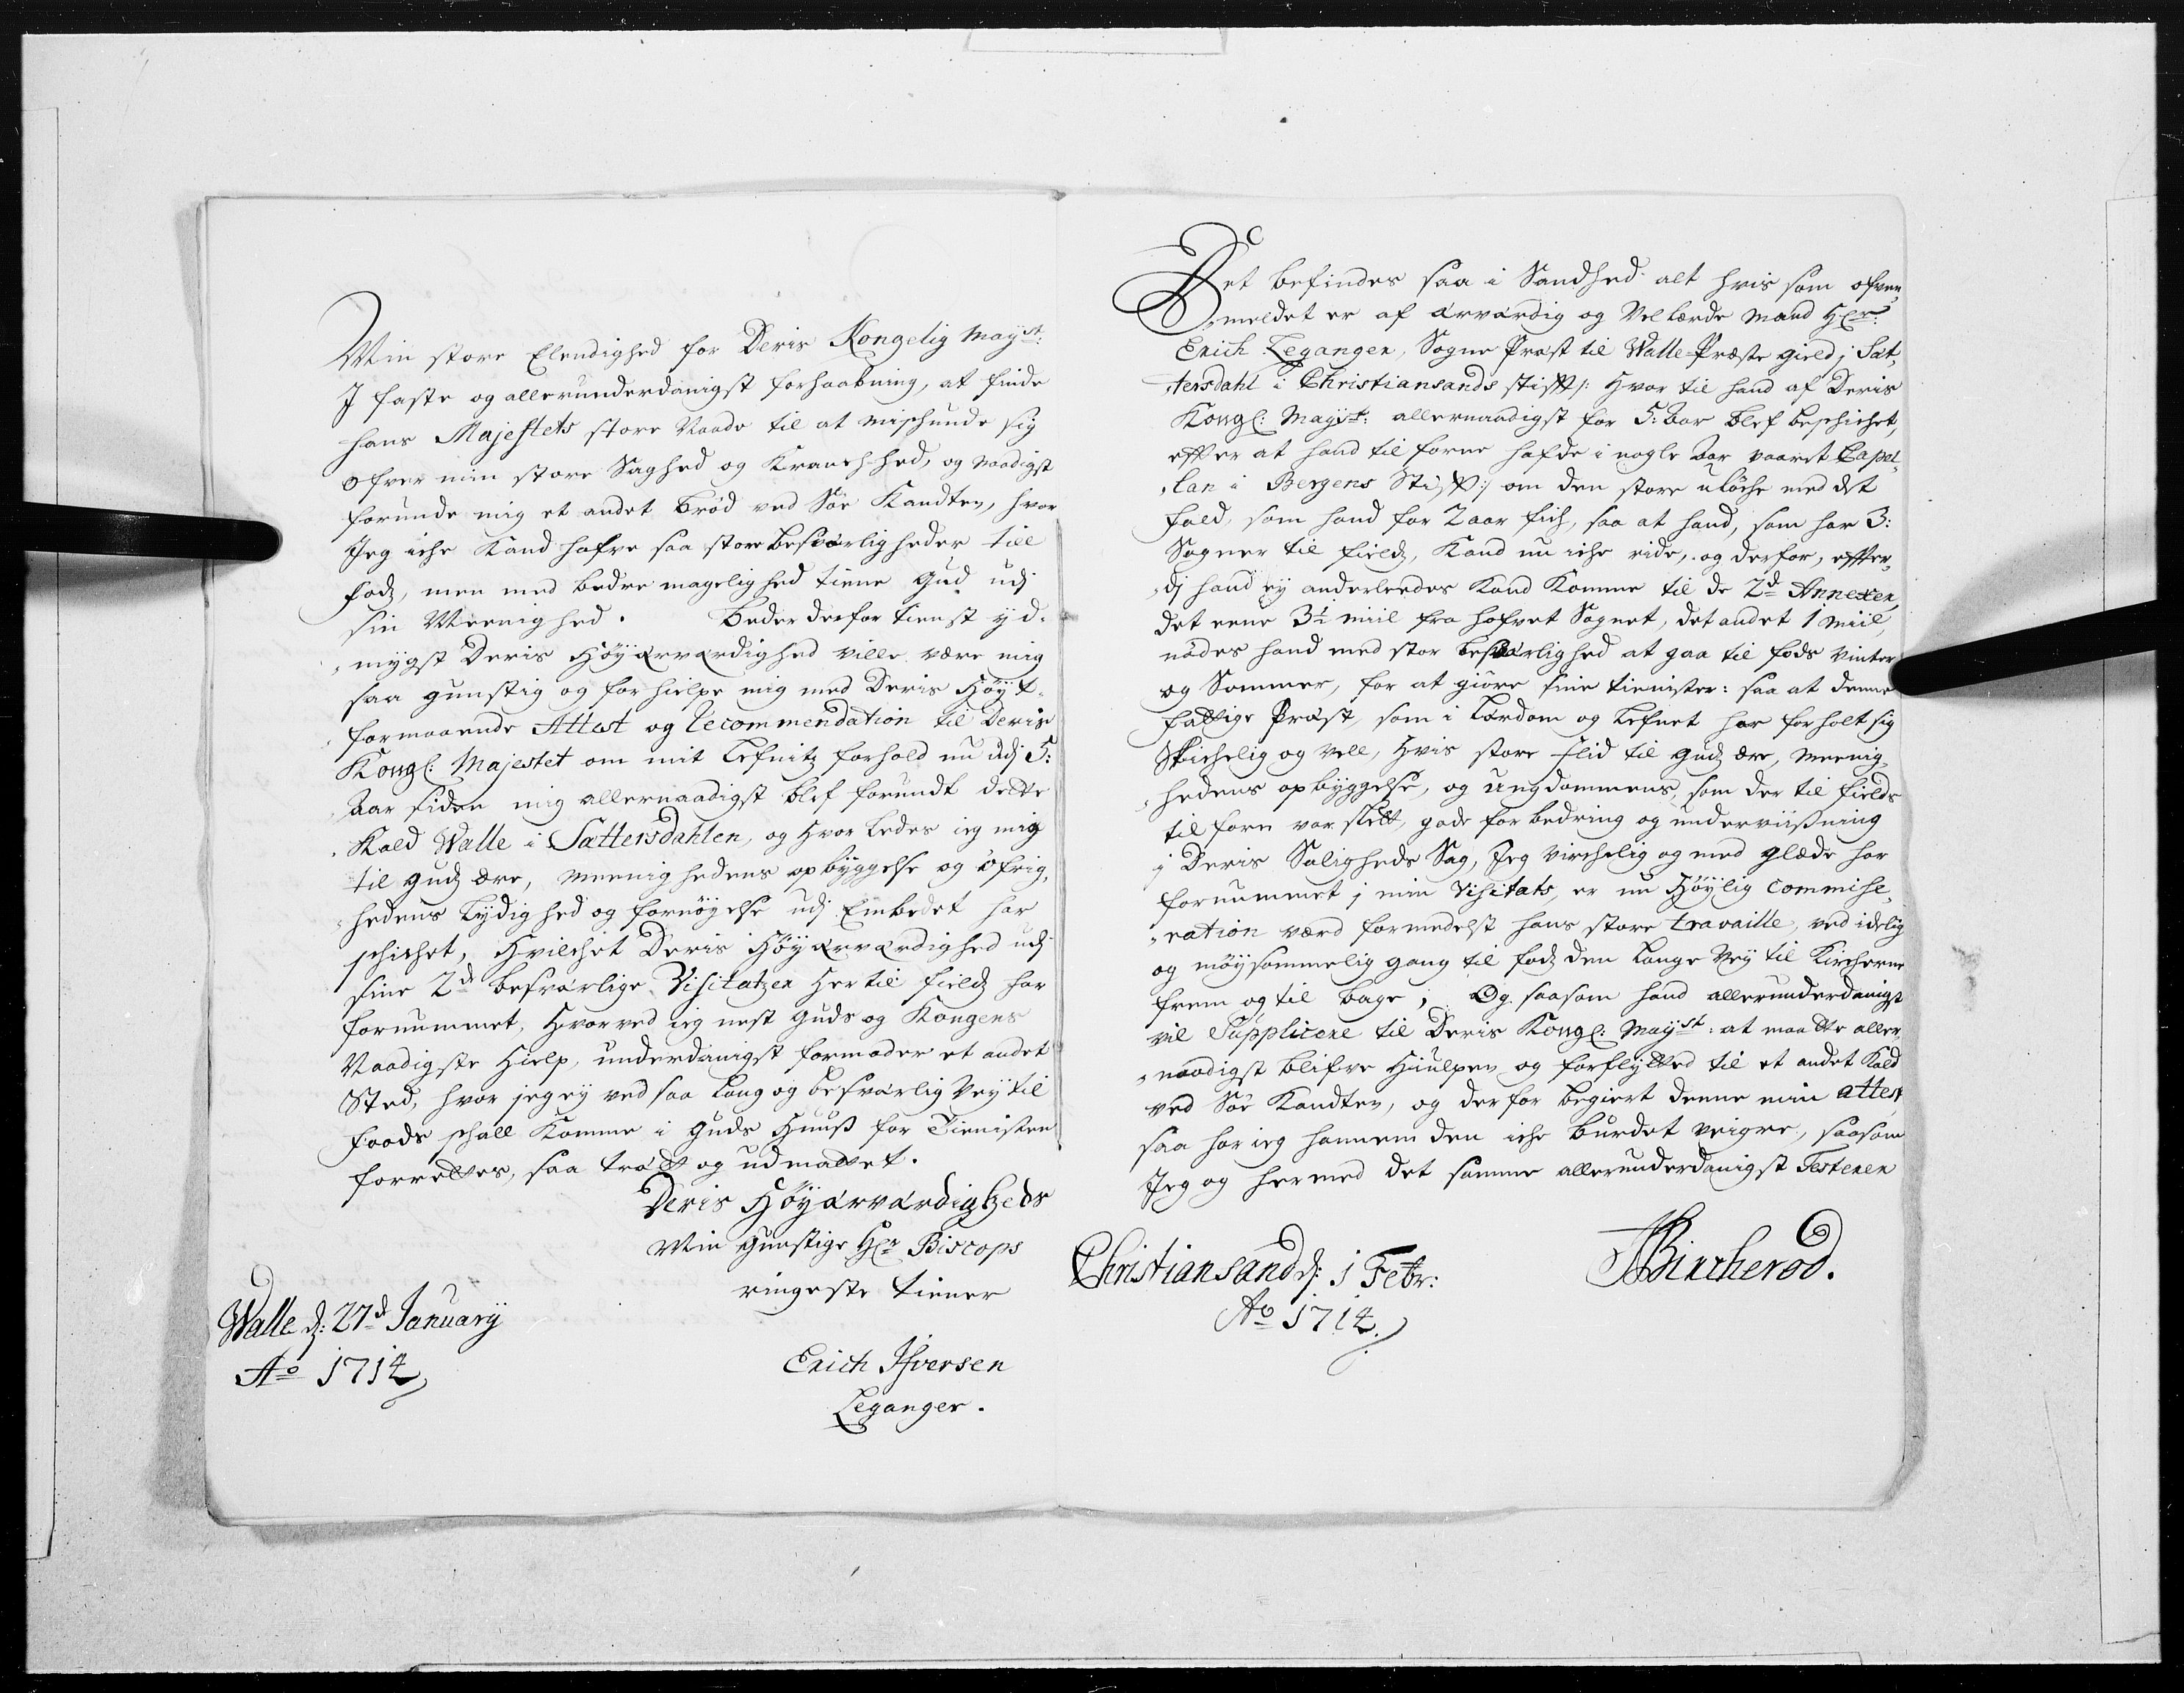 Min store Elendighed for Deris Kongelig Mayst:
I faste og allerunderdanigst forhaabning, at finde
hans Majestets store Naade til at mischunde sig
ofver min store Saghed og Kranchhed, og Naadigst
forunde mig et andet brød ved Söe Kandten, hvor
Jeg iche Kand hafve saa store besværligheder till
fods, men med bedre magelighed tiene Gud udj
sin Meenighed. Beder derfor tienst yd-
„mygst Deris Höyærværdighed ville være mig
saa gunstig og forhielpe mig med Deris Höyt-
formaaende Attest og Recommendation til Deris
Kongl: Majestet om mit Lefnitz forhold nu udj 5:
Aar siden mig allernaadigst blef forundt dette
Kald Walle i Sættersdahlen, og hvorledes ieg mig
til Guds ære, Meenighedens opbyggelse og öfrig„
„hedens Lydighed og fornöyelse udj Embedet har
schichet, Hvilchet Deris Höyærværdighed udj
sine 2de besværlige Visitatzer her til fields har
fornummet, Hvorved ieg nest Guds og Kongens
Naadigste Hielp, underdanigst formoder et andet
Sted, hvor jeg ey ved saa Lang og besværlig Vey til
foods schall Komme i Guds Huuß for Tienisten
forrettes, saa trætt og udmattet.
Deris Höyærværdigheds
Min gunstige Hr Biscops
ringeste tiener
Walle d: 27de January
Ao 1714
Erich Ifversen
Leganger.
Det befindes saa i Sandhed alt hvis som ofven„
„meldet er af ærværdig og Vellærde Mand Hr:
Erich Leganger, Sogne Præst til Walle Præste gield j Sæt„
„tersdahl i Christiansands stifft /: Hvor til hand af Deris
Kongl: Mayst: allernaadigst for 5: Aar blef beschichet,
effter at hand til forne hafde i nogle Aar vaaret Capel„
„lan i Bergens Stifft :/ om den store uløche med det
fald, som hand for 2 aar fich, saa at hand, som har 3:
Sogner til fields, Kand nu iche ride, og derfor, effter„
„dj hand ey anderleedes Kand Komme til de 2de Annexer,
det eene 3½ miil fra hofvet Sognet, det andet 1 miil,
nödes hand med stor besværlighed at gaa til fods Vinter
og Sommer, for at giöre sine tienister: saa at denne
fattige Præst, som i Lærdom og Lefnet har forholt sig
Skichelig og vell, Hvis store flid til Guds ære, Meenig„
„hedens opbyggelse, og ungdommens, som der til fields
til forn var slett, gode forbedring og underviißning
j Deris Saligheds Sag, Jeg virchelig og med glæde har
fornummet j min Visitats, er nu Höylig commise„
„ration værd formedelst hans store travaille, ved idelig
og möysommelig gang til fods den Lange Vey til Kircherne
frem og til bage; Og saasom hand allerunderdanigst
vil Supplicere til Deris Kongl: Mayst: at maatte aller„
„naadigst blifve Hiulpen og forflytted til et andet Kald
ved Söe Kandten, og derfor begiert denne min attest
saa har ieg hannem den iche burdet veigre, saasom
Jeg og hermed det samme allerunderdanigst Testerer
Christiansand d: 1 Febr:
Ao 1714
JBircherod.